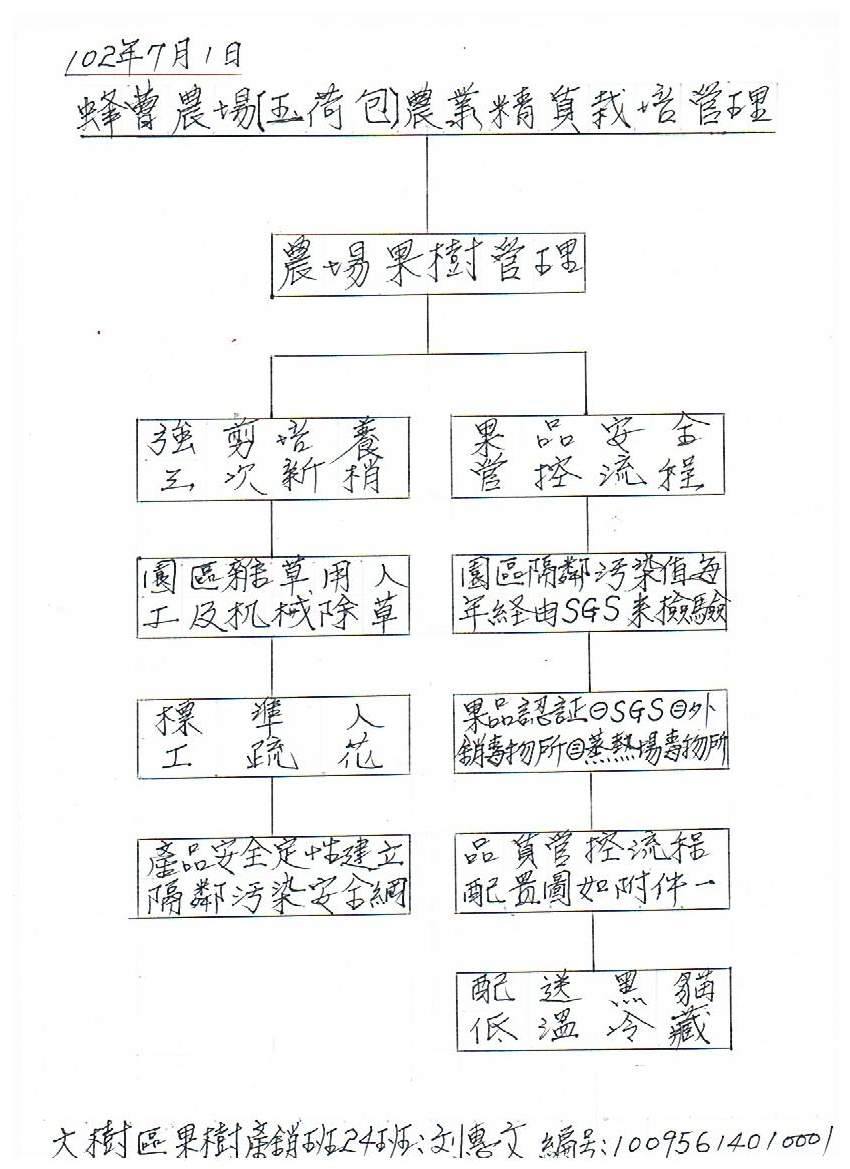 102年7月1日
蜂蕾農場(玉荷包)農業精質栽培管理
農場果樹管理
強剪培養
三次新梢
園區雜草用人
工及机械除草
標準人
工疏花
產品安全定性建立
隔鄰污染安全網
果品安全
管控流程
園區隔鄰污染值每
年経由SGS来檢驗
果品認証㊀SGS㊁外
銷毒物所㊂蒸熱場毒物所
品質管控流程
配置圖如附件一
配送黑貓
低溫冷藏
大樹區果樹產銷班24班:刘惠文 編号:10095614010001